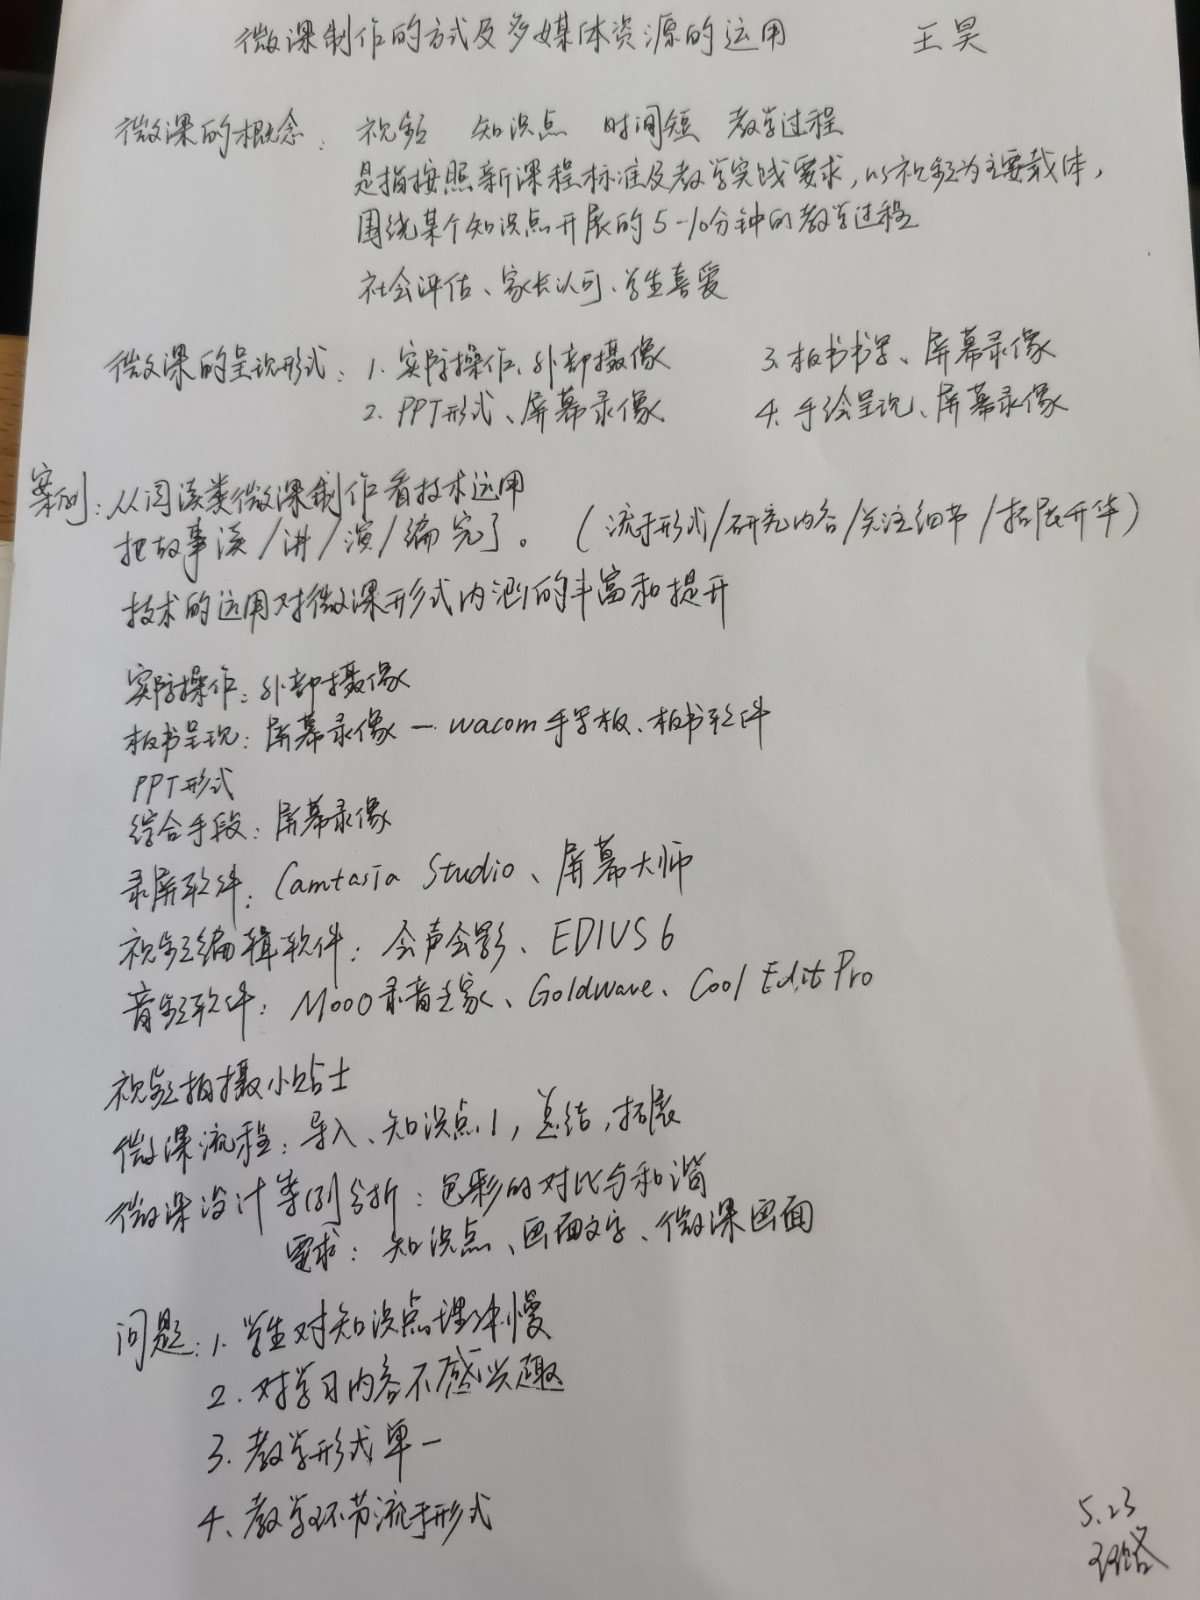 微课制作的方式及多媒体资源的运用 王昊
微课的概念: 视频 知识点 时间短 教学过程
是指按照新课程标准及教学实践要求,以视频为主要载体,
围绕某个知识点开展的5-10分钟的教学过程
社会评估、家长认可、学生喜爱
微课的呈现形式: 1. 实际操作、外部摄像 3. 板书书写、屏幕录像
2. PPT形式、屏幕录像 4. 手绘呈现、屏幕录像
案例: 从阅读类微课制作看技术运用
把故事读/讲/演/编完了。 (流于形式/研究内容/关注细节/拓展升华)
技术的运用对微课形式内涵的丰富和提升
实际操作: 外部摄像
板书呈现: 屏幕录像 — wacom手写板、板书软件
PPT形式
综合手段: 屏幕录像
录屏软件: Camtasia Studio、屏幕大师
视频编辑软件: 会声会影、EDIUS 6
音频软件: Mooo录音专家、Goldwave、Cool Edit Pro
视频拍摄小贴士
微课流程: 导入、知识点1,总结,拓展
微课设计案例分析: 色彩的对比与和谐
要求: 知识点、画面文字、微课画面
问题: 1. 学生对知识点理解慢
2. 对学习内容不感兴趣
3. 教学形式单一
4、教学环节流于形式
5.23